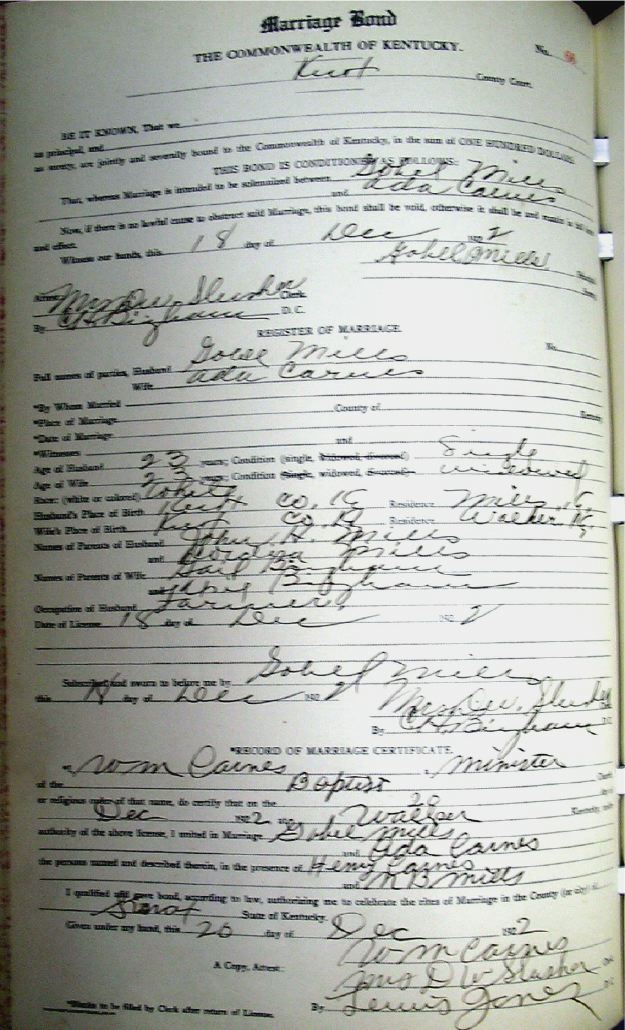 Marriage Bond
THE COMMONWEALTH OF KENTUCKY.
No.
Knox County Court.
BE IT KNOWN, That we
as principal, and
as surety, are jointly and severally bound to the Commonwealth of Kentucky, in the sum of ONE HUNDRED DOLLARS.
THIS BOND IS CONDITIONED AS FOLLOWS:
That, whereas Marriage is intended to be solemnized between Gobel Mills
and Ada Carnes
Now, if there is no lawful cause to obstruct said Marriage, this bond shall be void, otherwise it shall be and remain in full
and effect.
Witness our hands, this 18 day of Dec 1922
Gobel Mills
Attest: Mrs D W. Slusher Clerk.
By CH Bingham D. C.
REGISTER OF MARRIAGE.
No.
Full names of parties, Husband Gobel Mills
Wife Ada Carnes
*By Whom Married
*Place of Marriage County of
*Date of Marriage
*Witnesses and
Age of Husband 23 years; Condition (single, widowed, divorced) Single
Age of Wife 23 years; Condition (single, widowed, divorced) widowed
Race: (white or colored) White
Husband's Place of Birth Knox Co. K Residence Mills
Wife's Place of Birth Knox Co. Ky Residence Walker Ky
Names of Parents of Husband John H. Mills
and Mills
Names of Parents of Wife Bingham
and Bingham
Occupation of Husband Farmer
Date of License 18 day of Dec 1922
Subscribed and sworn to before me by Gobel Mills
this 18 day of Dec 1922
Mrs D W. Slusher
By CH Bingham D. C.
*RECORD OF MARRIAGE CERTIFICATE.
I, Wm Carnes, Minister
of the Baptist Church
or religious order of that name, do certify that on the 20 day of
Dec 1922, at Walker Kentucky, under
authority of the above license, I united in Marriage Gobel Mills
and Ada Carnes
the persons named and described therein, in the presence of Henry Carnes
and M B Mills
I qualified and gave bond, according to law, authorizing me to celebrate the rites of Marriage in the County (or city) of
Knox State of Kentucky.
Given under my hand, this 20 day of Dec 1922
Wm Carnes
A Copy, Attest: Mrs D W Slusher
By Lewis Jones D. C.
*Blanks to be filed by Clerk after return of License.